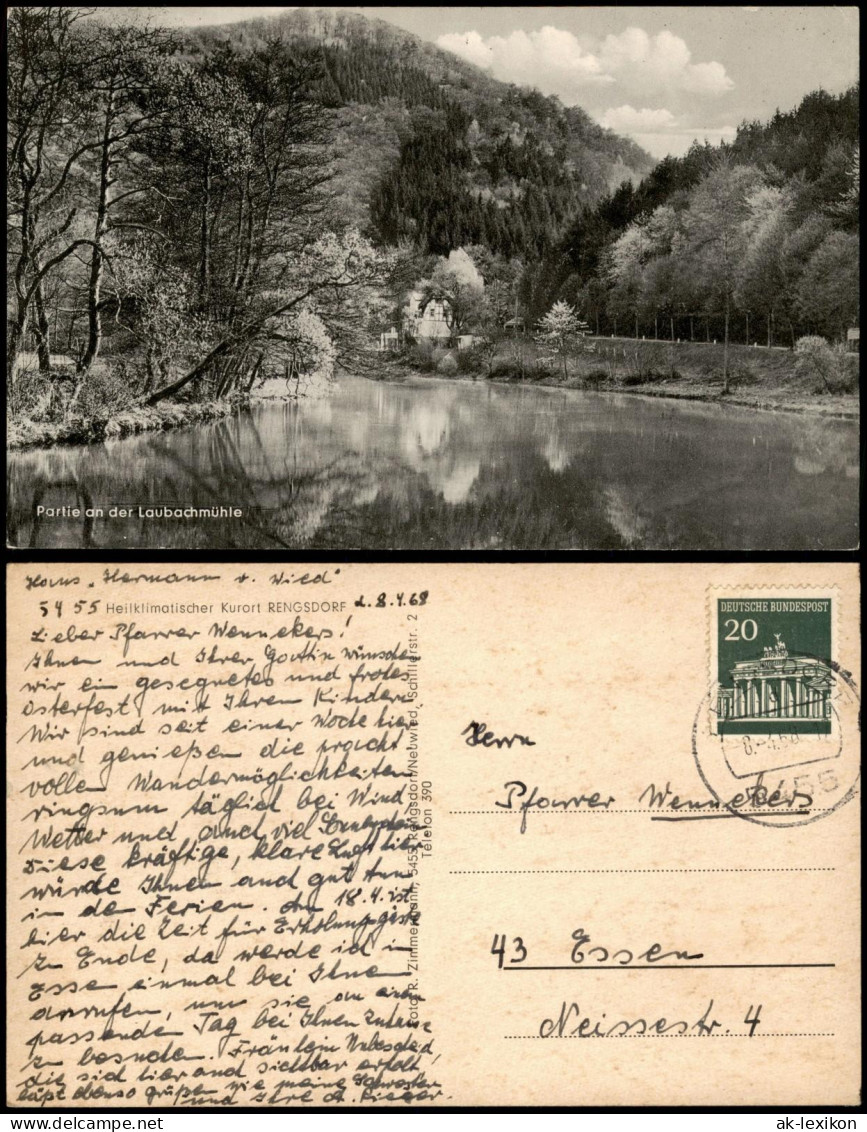 Partie an der Laubachmühle
Haus „Hermann v. Wied"
5455 Heilklimatischer Kurort RENGSDORF d. 8.4.68
Lieber Pfarrer Wennekers!
Ihnen und Ihrer Gattin wünschen
wir ein gesegnetes und frohes
Osterfest mit Ihren Kindern.
Wir sind seit einer Woche hier
und genießen die pracht
vollen Wandermöglichkeiten
ringsum täglich bei Wind
Wetter und auch viel
Diese kräftige, klare Luft hier
würde Ihnen auch gut tun
in den Ferien. Am 18.4. ist
hier die Zeit für Erholungsgäste
zu Ende, da werde ich in
Essen einmal bei Ihnen
anrufen, um sie an einem
passenden Tag bei Ihnen Zuhause
zu besuchen. Fräulein
die sich hier auch sichtbar erholt,
läßt ebenso grüßen wie meine Schwester
und Ihre A.
Foto: R. Zimmermann, 5455 Rengsdorf/Neuwied, Schillerstr. 2
Telefon 390
DEUTSCHE BUNDESPOST
20
8.-4.68
5455
Herrn
Pfarrer Wennekers
43 Essen
Neissestr. 4
ak-lexikon